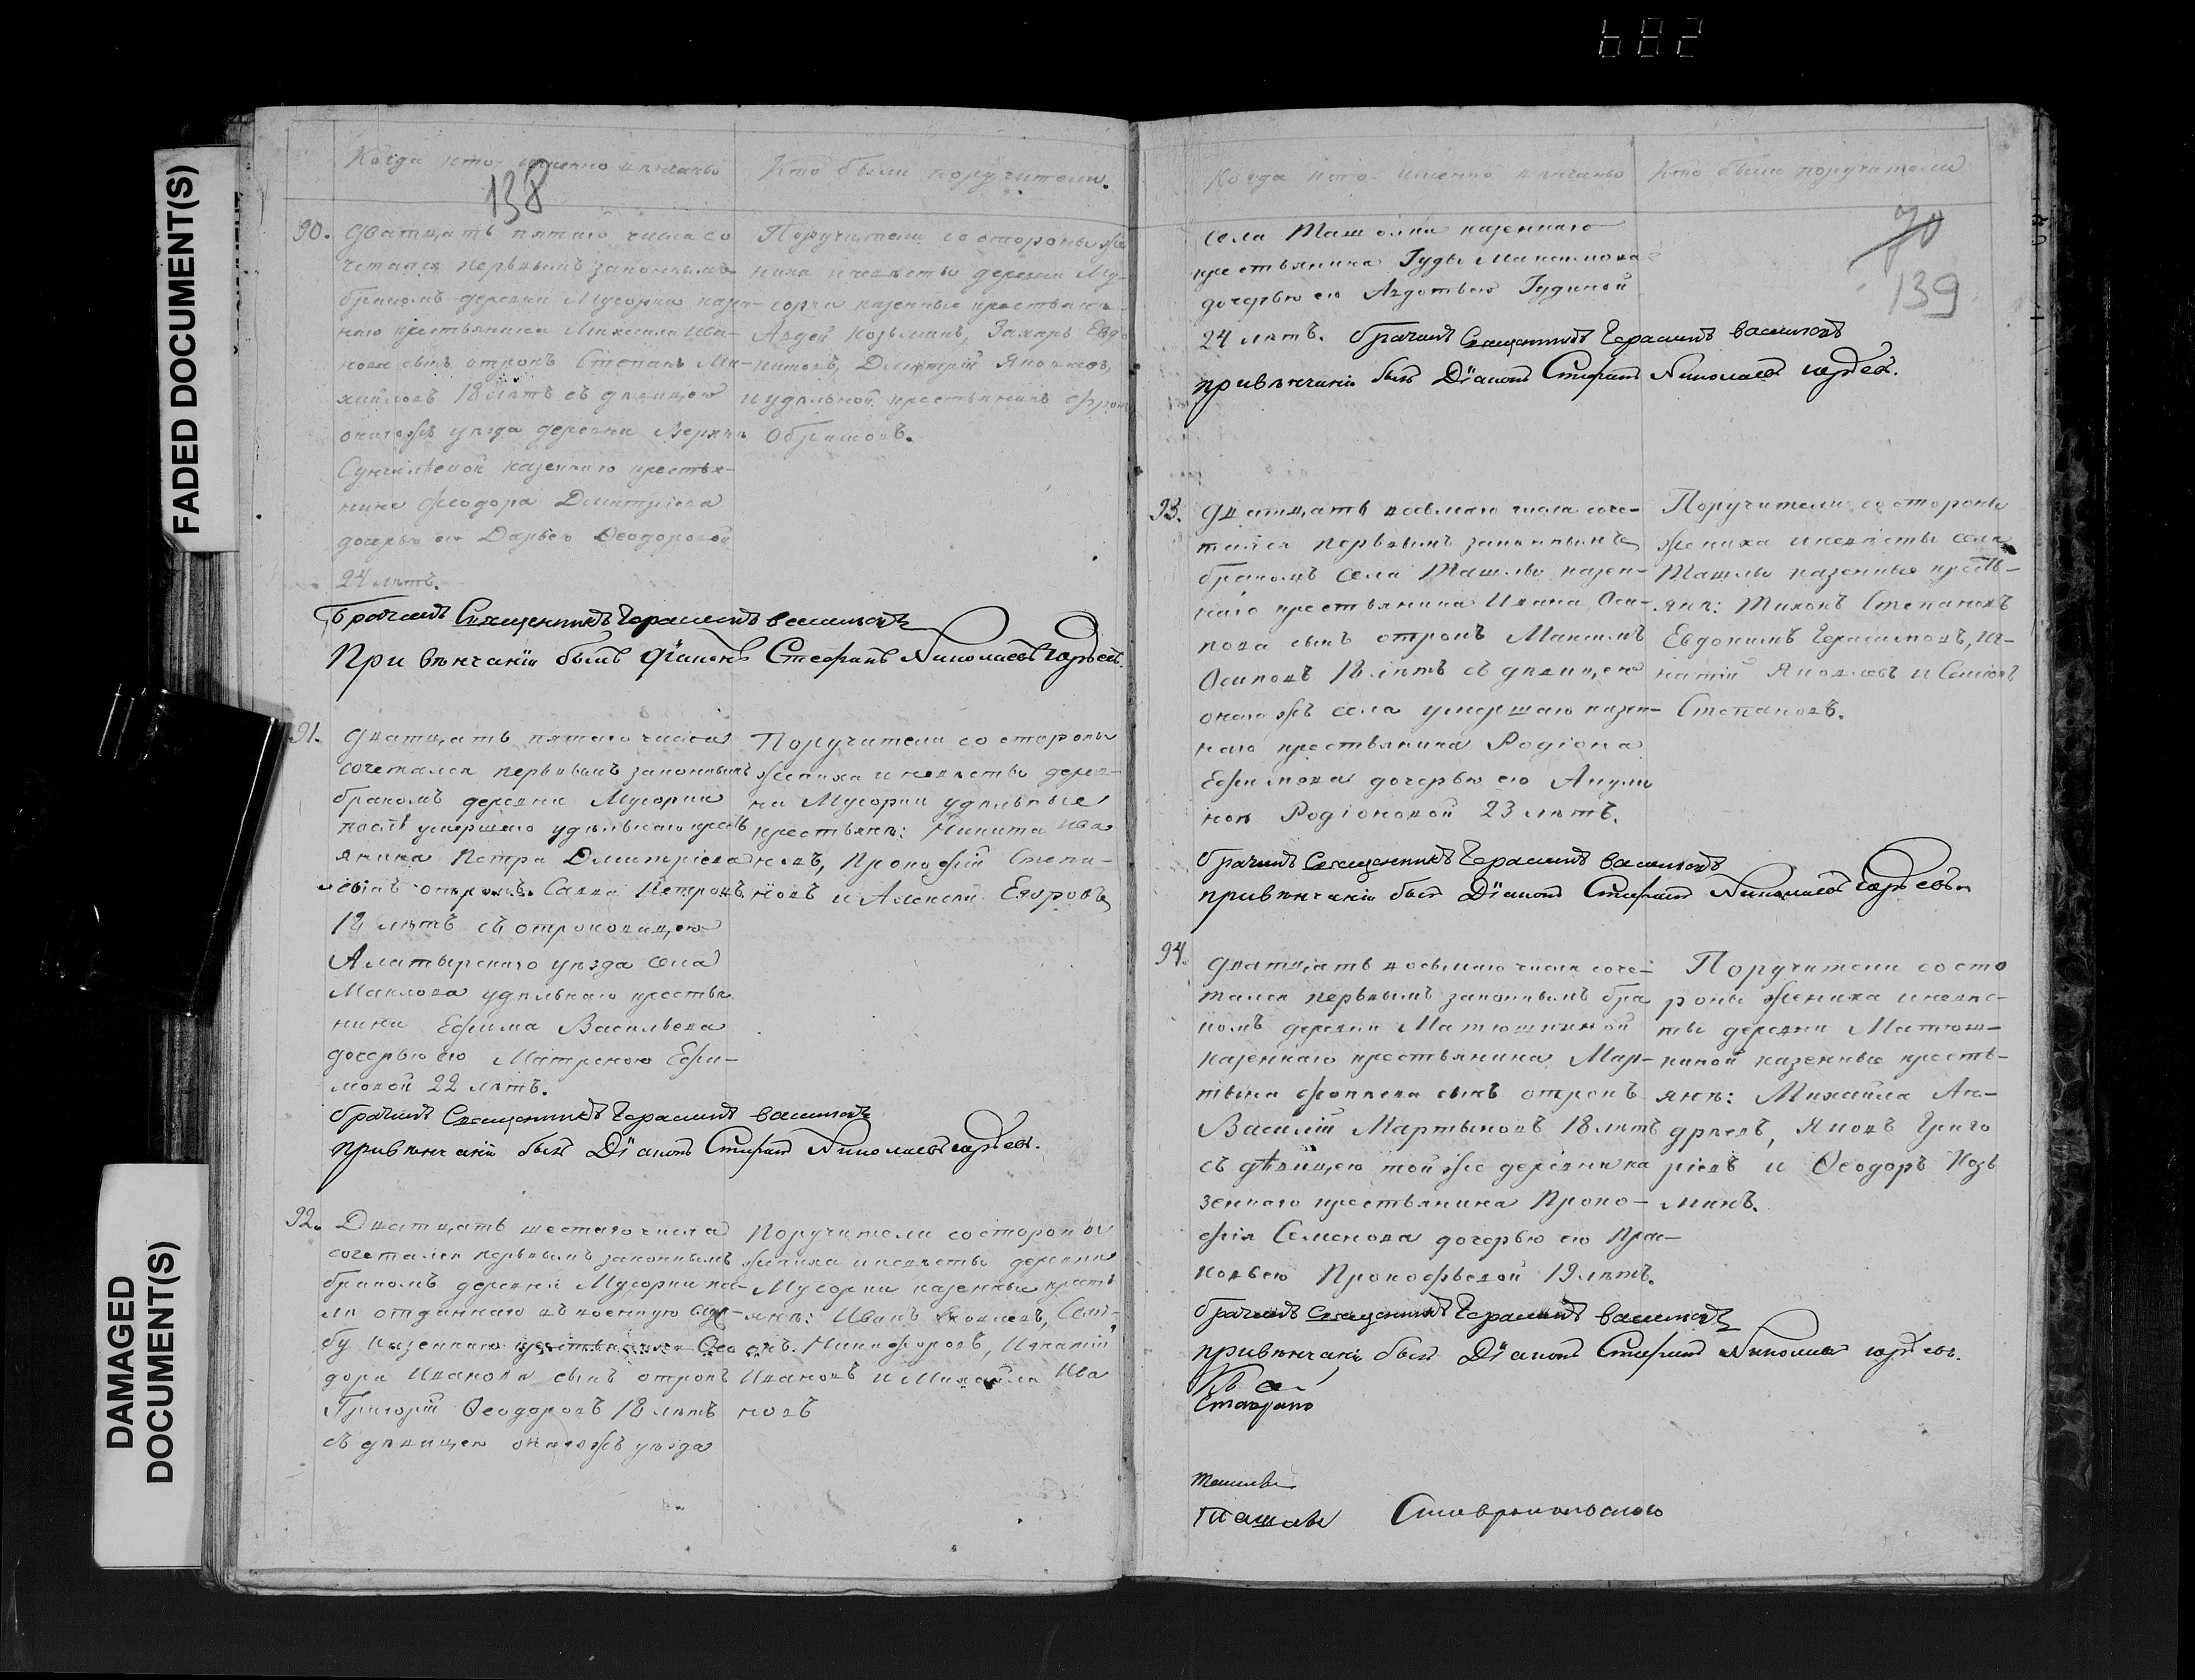 682
FADED DOCUMENT(S)
DAMAGED
DOCUMENT(S)
Когда кто именно вѣнчаны
Кто были поручители.
138
90. Дватцать пятаго числа со
четался первымъ законнымъ
бракомъ деревни Мусорки казе-
наго крестьянина Михаила Ива-
нова сынъ отрокъ Степанъ Ми-
хайловъ 18 лѣтъ съ дѣвицею
онагожъ уѣзда деревни Верхня
казеннаго крестья-
нина Ѳеодора Дмитріева
дочерью ею Дарьею Ѳеодоровой
24 лѣтъ.
Поручители со стороны же
ниха и невѣсты деревни Му-
сорки казенные крестьяня
Авдей Козьминъ, Захаръ Евдо
кимовъ, Дмитрій Яковлевъ,
и удѣльной крестьянинъ
Абрамовъ.
брачилъ Священникъ Герасимъ васильевъ
При вѣнчаніи былъ дїаконъ Стефанъ Николаевъ
91. Дватцать пятаго числа
сочетался первымъ законнымъ
бракомъ деревни Мусорки
послѣ умершаго удѣльнаго крест
янина Петра Дмитріева
сынъ отрокъ Савва Петровъ
18 лѣтъ съ отроковицею
Алатырскаго уѣзда села
удѣльнаго крестья
нина Ефима Васильева
дочерью ею Матреною Ефи-
мовой 22 лѣтъ.
Поручители со стороны
жениха и невѣсты дерев-
ни Мусорки удѣльные
крестьянѣ: Никита Ива
новъ, Прокофій Степа-
новъ и Алексѣй Егоровъ
брачилъ Священникъ Герасимъ васильевъ
при вѣнчаніи былъ Дїаконъ Стефанъ Николаевъ
92. Дватцать шестаго числа
сочетался первымъ законнымъ
бракомъ деревни Мусорки пос-
лѣ отданнаго въ военную служ-
бу казеннаго крестьянина Ѳео
дора Иванова сынъ отрокъ
Григорій Ѳеодоровъ 18 лѣтъ
съ дѣвицею онагожъ уѣзда
Поручители со стороны
жениха и невѣсты деревни
Мусорки казенныя крестъ
янѣ: Иванъ Яковлевъ, Сем-
онъ Никифоровъ, Игнатій
Ивановъ и Михайла Ива
новъ
Когда кто именно вѣнчаны
Кто были поручители
70
139
села Ташолки казеннаго
крестьянина Іуды Максимова
дочерью ею Авдотьею Іудиной
24 лѣтъ. брачилъ Священникъ Герасимъ васильевъ
при вѣнчаніи былъ Дїаконъ Стефанъ Николаевъ
93. Дватцать восьмаго числа соче-
тался первымъ законнымъ
бракомъ села Ташлы казен-
наго крестьянина Ивана Оси-
пова сынъ отрокъ Максимъ
Осиповъ 18 лѣтъ съ дѣвицею
онагожъ села умершаго казен-
наго крестьянина Родіона
Ефимова дочерью ею Акули
ной Родіоновой 23 лѣтъ.
Поручители со стороны
жениха и невѣсты села
Ташлы казенные крестъ-
янѣ: Тихонъ Степановъ
Евдокимъ Герасимовъ, Иг-
натій Яковлевъ и Семіонъ
Степановъ.
брачилъ Священникъ Герасимъ васильевъ
при вѣнчаніи былъ Дїаконъ Стефанъ Николаевъ
94. Дватцать восьмаго числа соче-
тался первымъ законнымъ бра
комъ деревни Матюшкиной
казеннаго крестьянина Мар-
тына сынъ отрокъ
Василій Мартыновъ 18 лѣтъ
съ дѣвицею той же деревни ка
зеннаго крестьянина Проко-
фія Семенова дочерью ею Прас-
ковьею Прокофьевой 19 лѣтъ.
Поручители со сто
роны жениха и невѣс-
ты деревни Матюш-
киной казенные крестъ-
янѣ: Михайла Ан-
дрѣевъ, Яковъ Григо
рьевъ и Ѳеодоръ Козь
минъ.
брачилъ Священникъ Герасимъ васильевъ
при вѣнчаніи былъ Дїаконъ Стефанъ Николаевъ
Ставропо
Ташлы
Ташлы Ставропольскаго